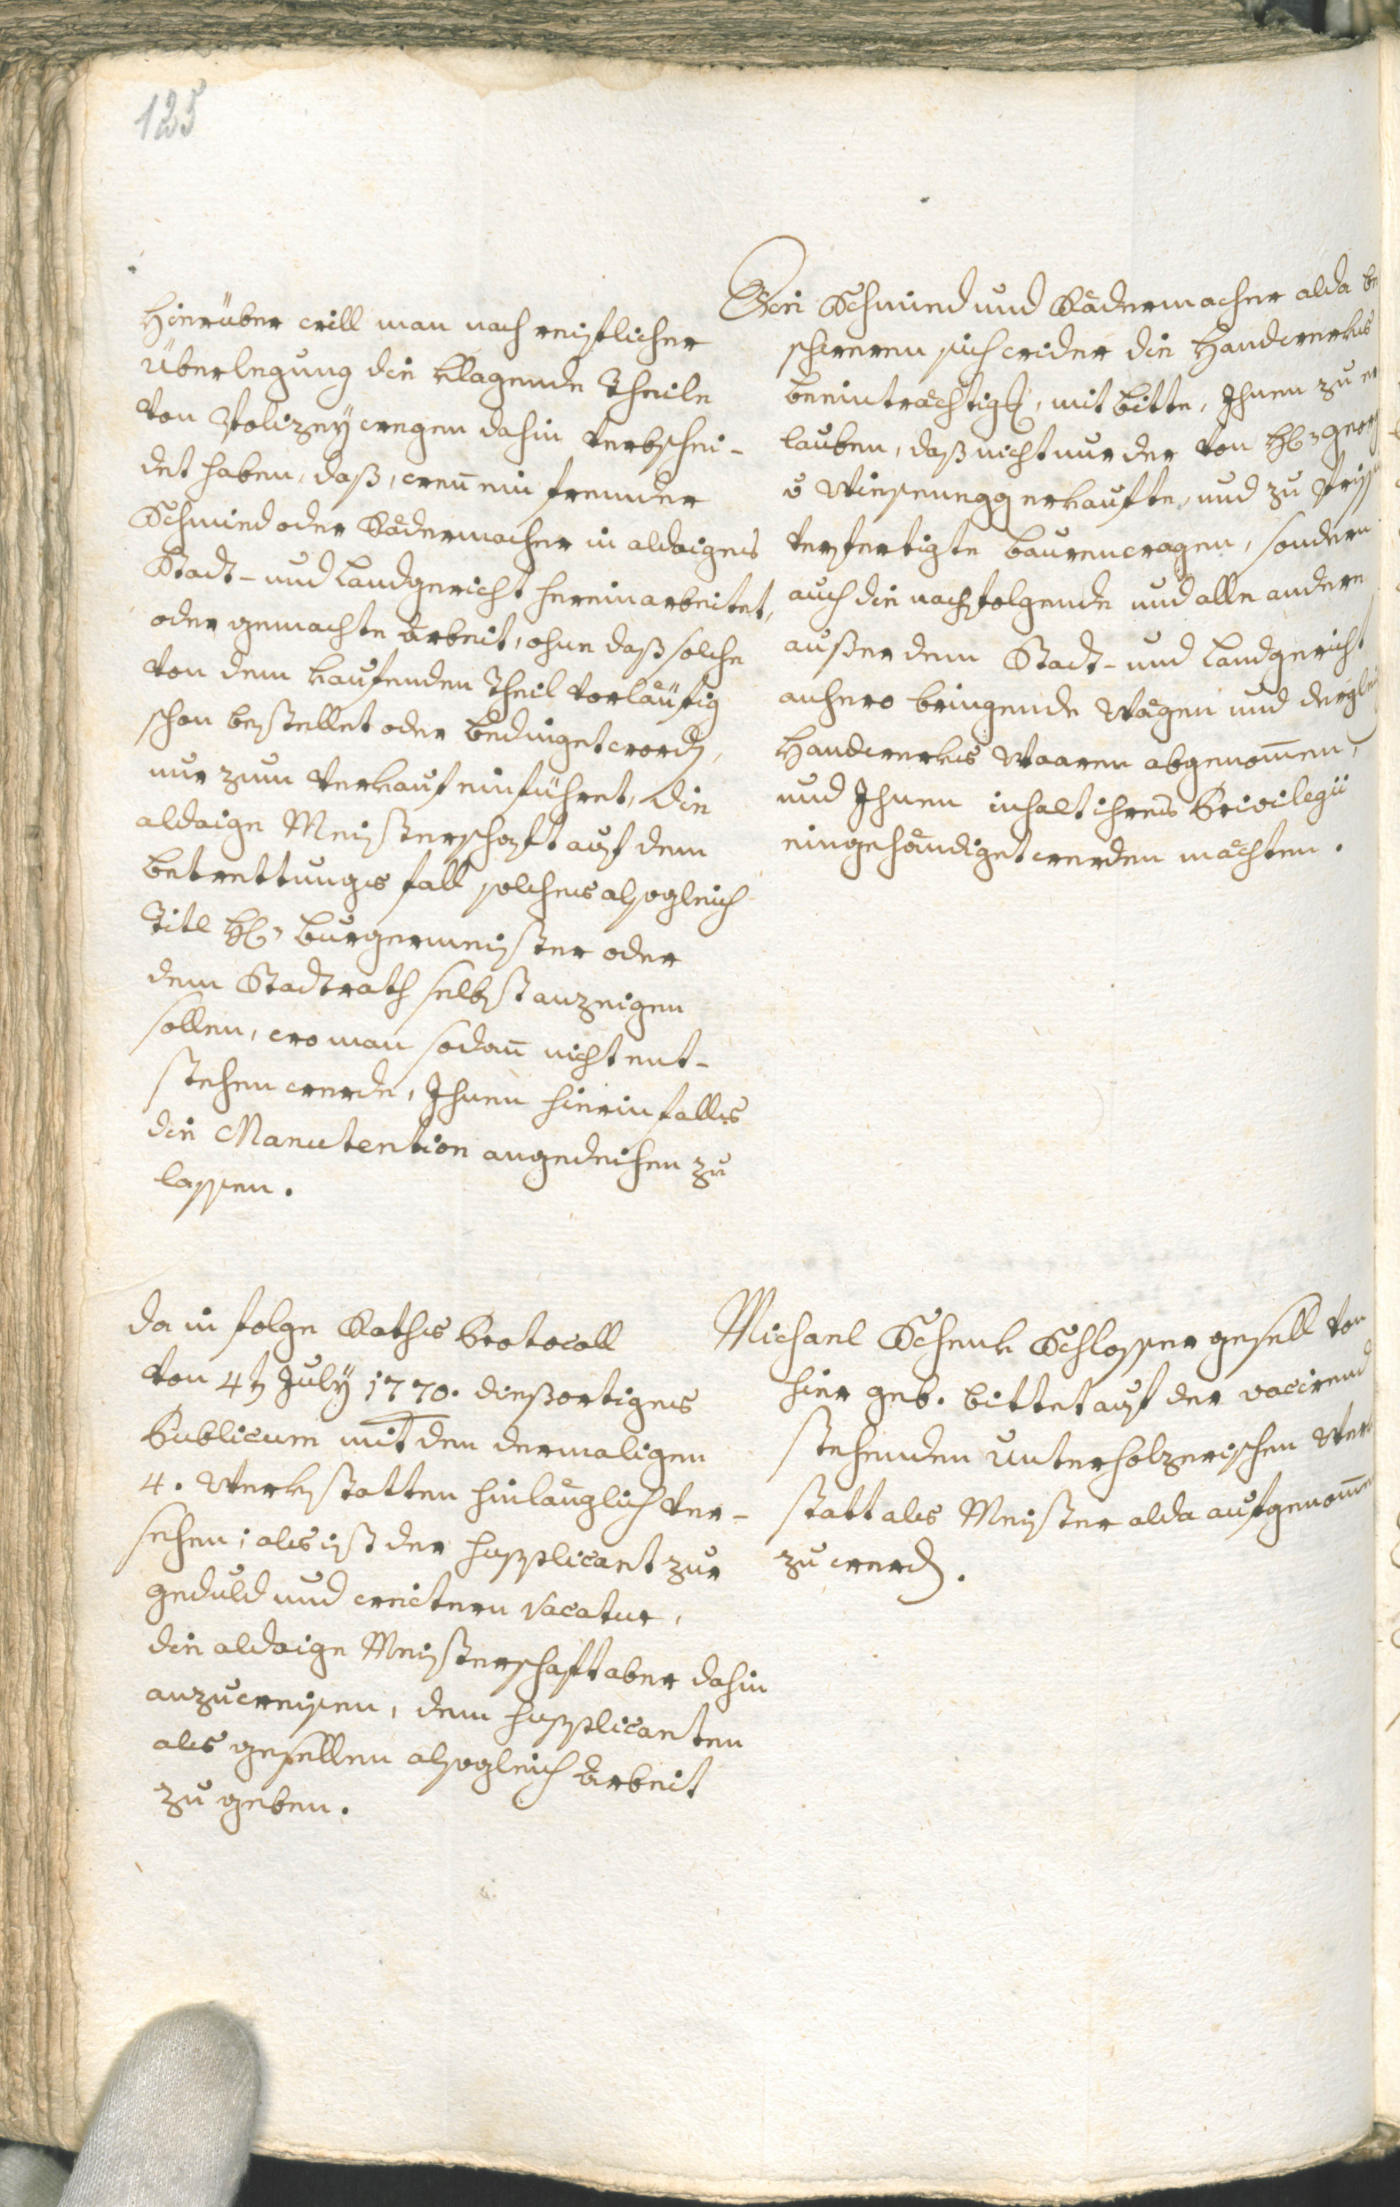 125
Hierüber will man nach reiflicher
Überlegung die klagende Theile
von Polizey wegen dahin verbschei-
det haben, daß, wen̄ ein fremder
Schmied oder Rädermacher in aldaiges
Stadt- und Landgericht hereinarbeitet,
oder gemachte Arbeit, ohne daß solche
von dem kaufenden Theil vorläufig
schon bestellet oder bedinget word,
nur zum Verkauf einführet, die
aldaige Meisterschaft auf dem
betrettungs fall solches alsogleich
Titl H: Burgermeister oder
dem Stadtrath selbst anzeigen
sollen, wo man sodan̄ nicht ent-
stehen werde, Ihnen hierinfalls
die Manutention angedeihen zu
lassen.
Die Schmied und Rädermacher alda be
schweren sich wider die Handwerks
beeinträchtig, mit bitte, Ihnen zu er
lauben, daß nicht nur der von H: Georg
v Wiesenegg erkaufte, und zu
verfertigte bauernwagen, sondern
auch die nachfolgende und alle andere
außer dem Stadt- und Landgericht
anhero bringende Wägen und dergl
Handwerks Waaren abgenom̄en,
und Ihnen inhalt ihres Privilegii
eingehändiget werden möchten.
da in folge Raths Protocoll
von 4t July 1770. dießortiges
Publicum mit den dermaligen
4. Werkstatten hinlänglich ver-
sehen; als ist der supplicant zur
geduld und weitern vacatur,
die aldaige Meisterschaft aber dahin
anzuweisen, dem supplicanten
als gesellen alsogleich Arbeit
zu geben.
Michael Schenk Schlosser gesell von
hier geb. bittet auf der vacirend
stehenden Unterholzerischen Werk
statt als Meister alda aufgenom̄en
zu werd.